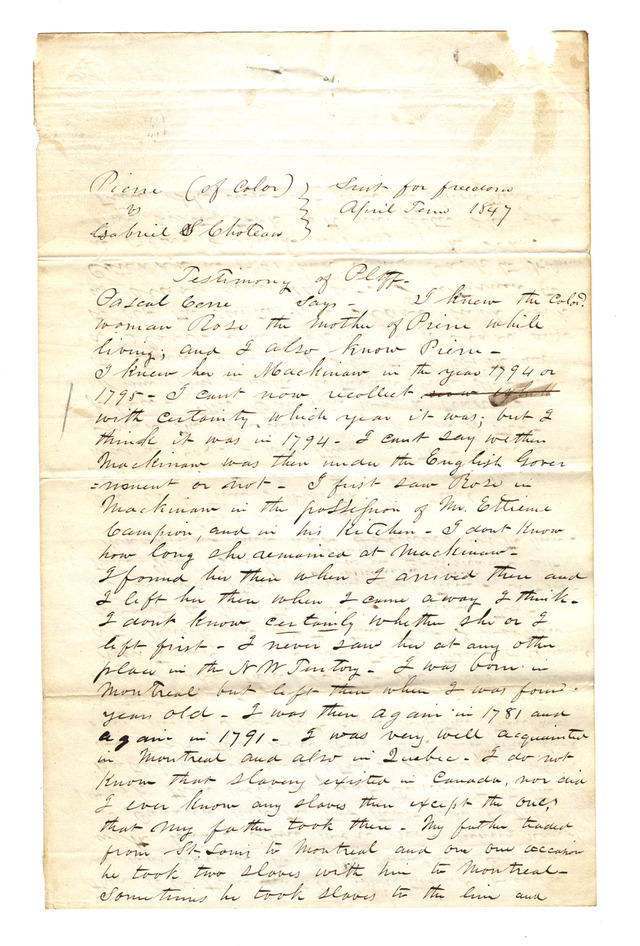 Pierre (of Color) } Suit for freedom
vs } April Term 1847
Gabriel S Choteau }
Testimony of Plff.
Pascal Cerre Says - I knew the Cold.
woman Rose the Mother of Pierre while
living; and I also know Pierre -
I knew her in Mackinaw in the year 1794 or
1795 - I cant now recollect
with certainty which year it was; but I
think it was in 1794 - I cant say wether
Mackinaw was then under the English Gover
=nment or not - I first saw Rose in
Mackinaw in the possession of Mr. Ettiene
Campion, and in his Kitchen - I dont Know
how long she remained at Mackinaw -
I found her then when I arrived there and
I left her then when I came away I think -
I dont know certainly whether she or I
left first - I never saw her at any other
place in the N W Teritory - I was born in
Montreal but left then when I was four
years old - I was then again in 1781 and
again in 1791 - I was very well acquainted
in Montreal and also in Quebec - I do not
Know that slavery existed in Canada, nor did
I ever know any slaves then except the ones
that my father took there - My father traded
from St. Louis to Montreal and one one occasion
he took two slaves with him to Montreal -
Sometimes he took slaves to the line and